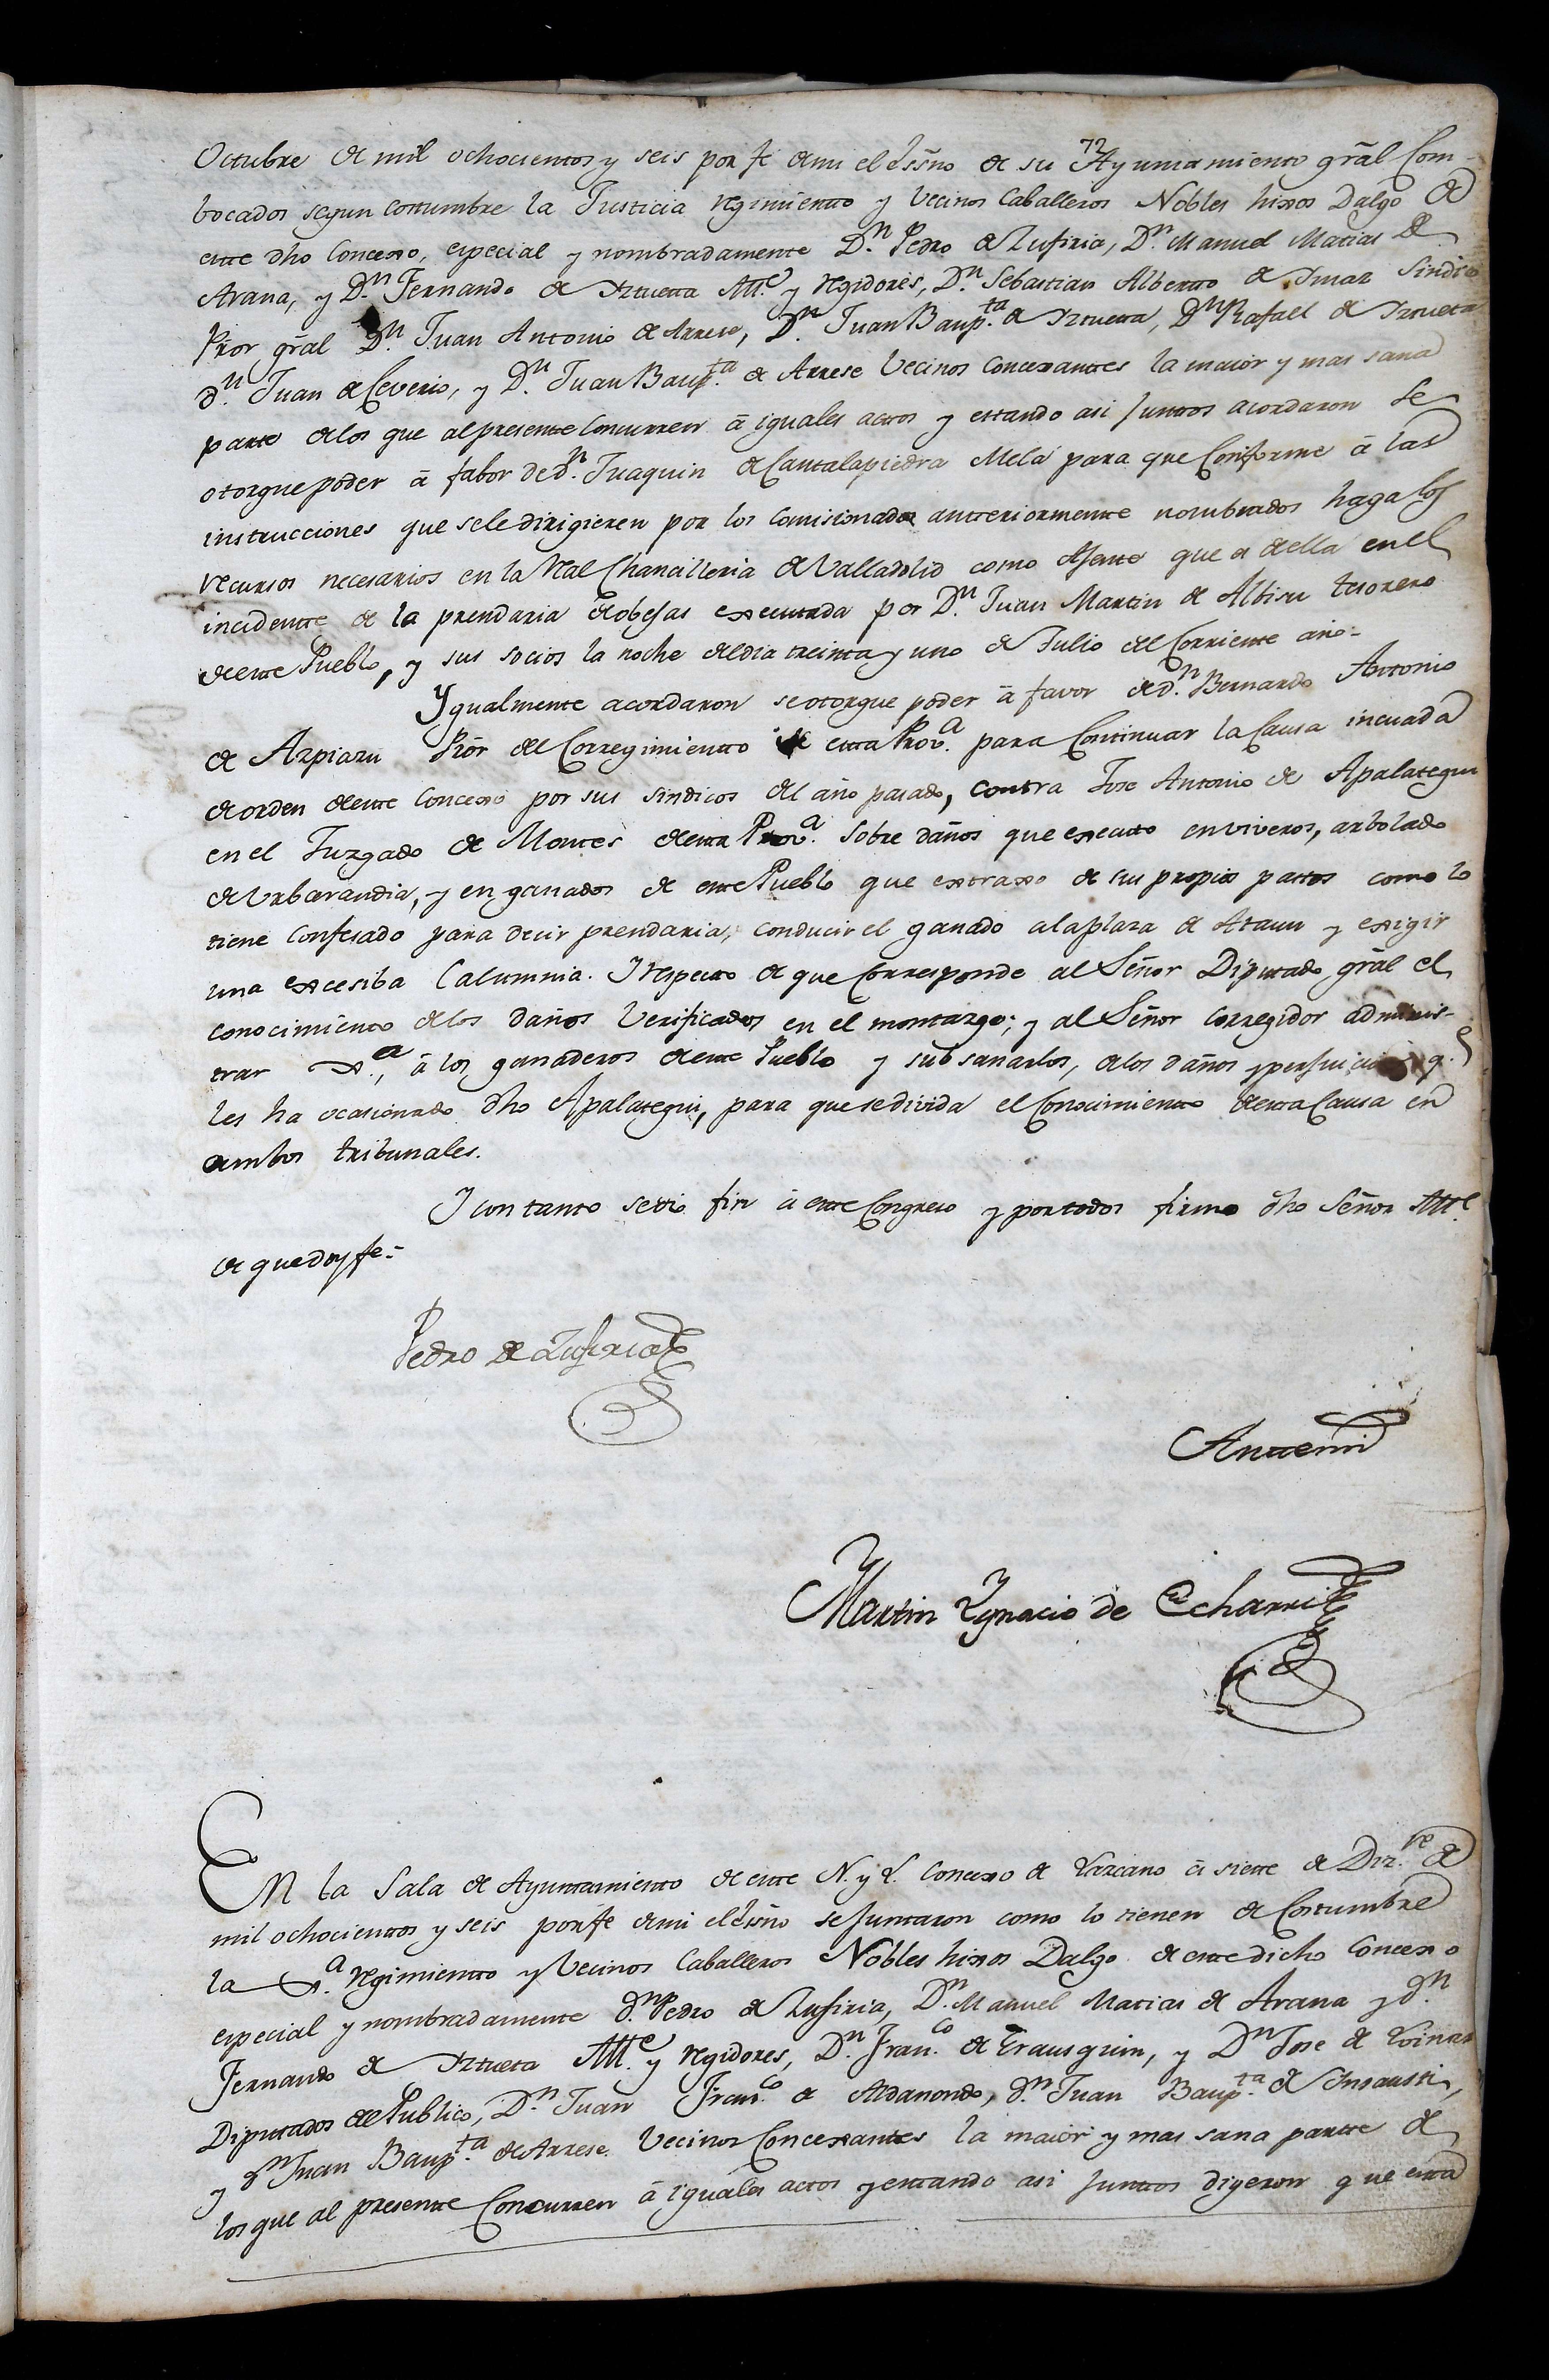 72
Octubre de mil ochocientos y seis por fe de mi el Essno de su Ayuntamiento gral Com-
bocados segun costumbre la Justicia regimiento y Vecinos Caballeros Nobles hixos Dalgo de
este dho Concexo, especial y nombradamente Dn. Pedro de Zufiria, Dn. Manuel Matias de
Arana, y Dn. Fernando de Yztueta Alle. y regidores, Dn. Sebastian Alberto de Ymaz Sindico
Pror gral Dn. Juan Antonio de Arrese, Dn. Juan Baupta. de Yztueta, Dn Rafael de Yztueta
dn. Juan de Ceverio, y Dn. Juan Baupta. de Arrese Vecinos Concexantes la maior y mas sana
parte delos que alpresente Concurren á iguales actos y estando asi Juntos acordaron se
otorgue poder á fabor de dn. Juaquin de Cantalapiedra Mela para que Conforme á las
instrucciones que sele dirigieren por los Comisionados anteriormente nombrados haga los
recursos necesarios en la Real Chancilleria de Valladolid como Agente que es de ella en el
incidente de la prendaria de obejas executada por Dn. Juan Martin de Albisu tesorero
de este Pueblo, y sus socios la noche del dia treinta y uno de Julio del Corriente año-
Ygualmente acordaron se otorgue poder á favor de dn. Bernardo Antonio
de Azpiazu Pror del Corregimiento de esta Prova. para Continuar la Causa incuada
de orden de este Concexo por sus sindicos del año pasado, contra Jose Antonio de Apalategui
en el Juzgado de Montes de esta Prova. sobre daños que executo en viveros, arbolado
de Urbarandia, y en ganados de este Pueblo que extraxo de sus propios pastos como lo
tiene Confesado para decir prendaria, conducir el ganado ala plaza de Ataun y exigir
una excesiba Calumnia. Y respecto de que Corresponde al Señor Diputado gral el
conocimiento delos daños Verificados en el montazgo; y al Señor Corregidor adminis-
trar Xa., á los ganaderos de este Pueblo y subsanarlos, delos daños y perjuicios qe.
les ha ocasionado dho Apalategui, para que se divida el Conocimiento de esta Causa en
ambos tribunales.
Y con tanto se dio fin á este Congreso y por todos firmo dho Señor Alle.
de que doy fe-
Pedro de Zufiria
Antemi
Martin Ygnacio de Echarri
En la Sala de Ayuntamiento de este N. y L. Concexo de Lazcano á siete de Dizre de
mil ochocientos y seis por fe de mi el Essno se Juntaron como lo tienen de Costumbre
la Xa. regimiento y Vecinos Caballeros Nobles hixos Dalgo de este dicho Concexo
especial y nombradamente dn. Pedro de Zufiria, Dn. Manuel Matias de Arana y dn.
Fernando de Yztueta Alle. y regidores, Dn. Franco. de Erausquin, y Dn Jose de Loinaz
Diputados del Publico, Dn. Juan Franco. de Aldanondo, dn. Juan Baupta. de Insausti,
y dn Juan Baupta. de Arrese Vecinos Concexantes la maior y mas sana parte de
los que al presente Concurren á iguales actos y estando asi Juntos digeron que esta